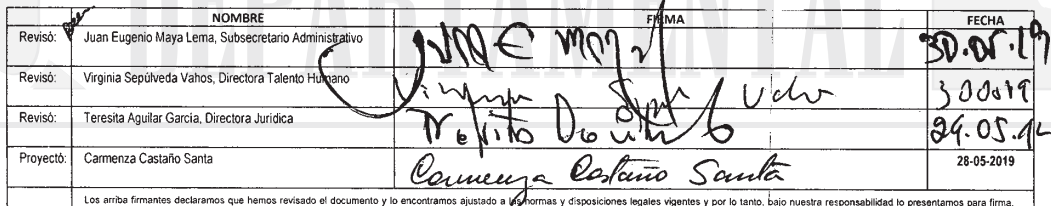 DEPARTAMENTAL
NOMBRE FIRMA FECHA
Revisó: Juan Eugenio Maya Lema, Subsecretario Administrativo 30.05.19
Revisó: Virginia Sepúlveda Vahos, Directora Talento Humano
Revisó: Teresita Aguilar García, Directora Jurídica
Proyectó: Carmenza Castaño Santa Carmenza Castaño Santa 28-05-2019
Los arriba firmantes declaramos que hemos revisado el documento y lo encontramos ajustado a las normas y disposiciones legales vigentes y por lo tanto, bajo nuestra responsabilidad lo presentamos para firma.